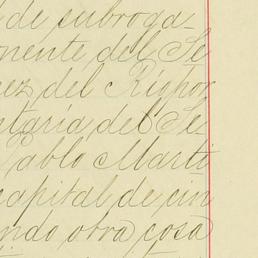 de subroga-
nente del Se
ez del Rigpor
etaría del Se
Pablo Marti
capital de cin
ando otra cosa